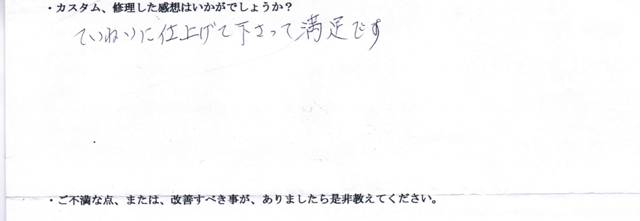 ・カスタム、修理した感想はいかがでしょうか？
ていねいに仕上げて下さって満足です
・ご不満な点、または、改善すべき事が、ありましたら是非教えてください。